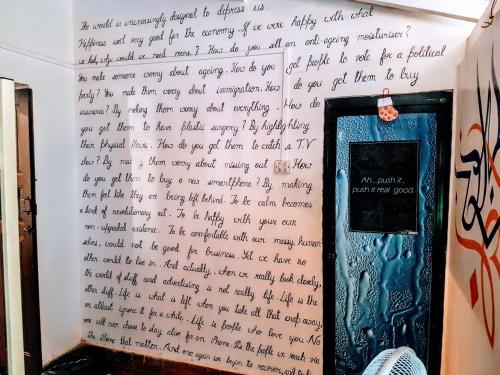 The world is increasingly designed to depress us.
Happiness isn't very good for the economy. If we were happy with what
we had, why would we need more? How do you sell an anti-ageing moisturiser?
You make someone worry about ageing. How do you get people to vote for a political
party? You make them worry about immigration. How do you get them to buy
insurance? By making them worry about everything. How do
you get them to have plastic surgery? By highlighting
their physical flaws. How do you get them to watch a TV
show? By making them worry about missing out. How
do you get them to buy a new smartphone? By making
them feel like they are being left behind. To be calm becomes
a kind of revolutionary act. To be happy with your own
non-upgraded existence. To be comfortable with our messy, human
selves, would not be good for business. Yet we have no
other world to live in. And actually, when we really look closely,
the world of stuff and advertising is not really life. Life is the
other stuff. Life is what is left when you take all that crap away,
or atleast ignore it for a while. Life is people who love you. No
one will ever choose to stay alive for an iPhone. Its the people we reach via
the iPhone that matter. And once again we begin to recover, and to li
Ah...push it,
push it real good.